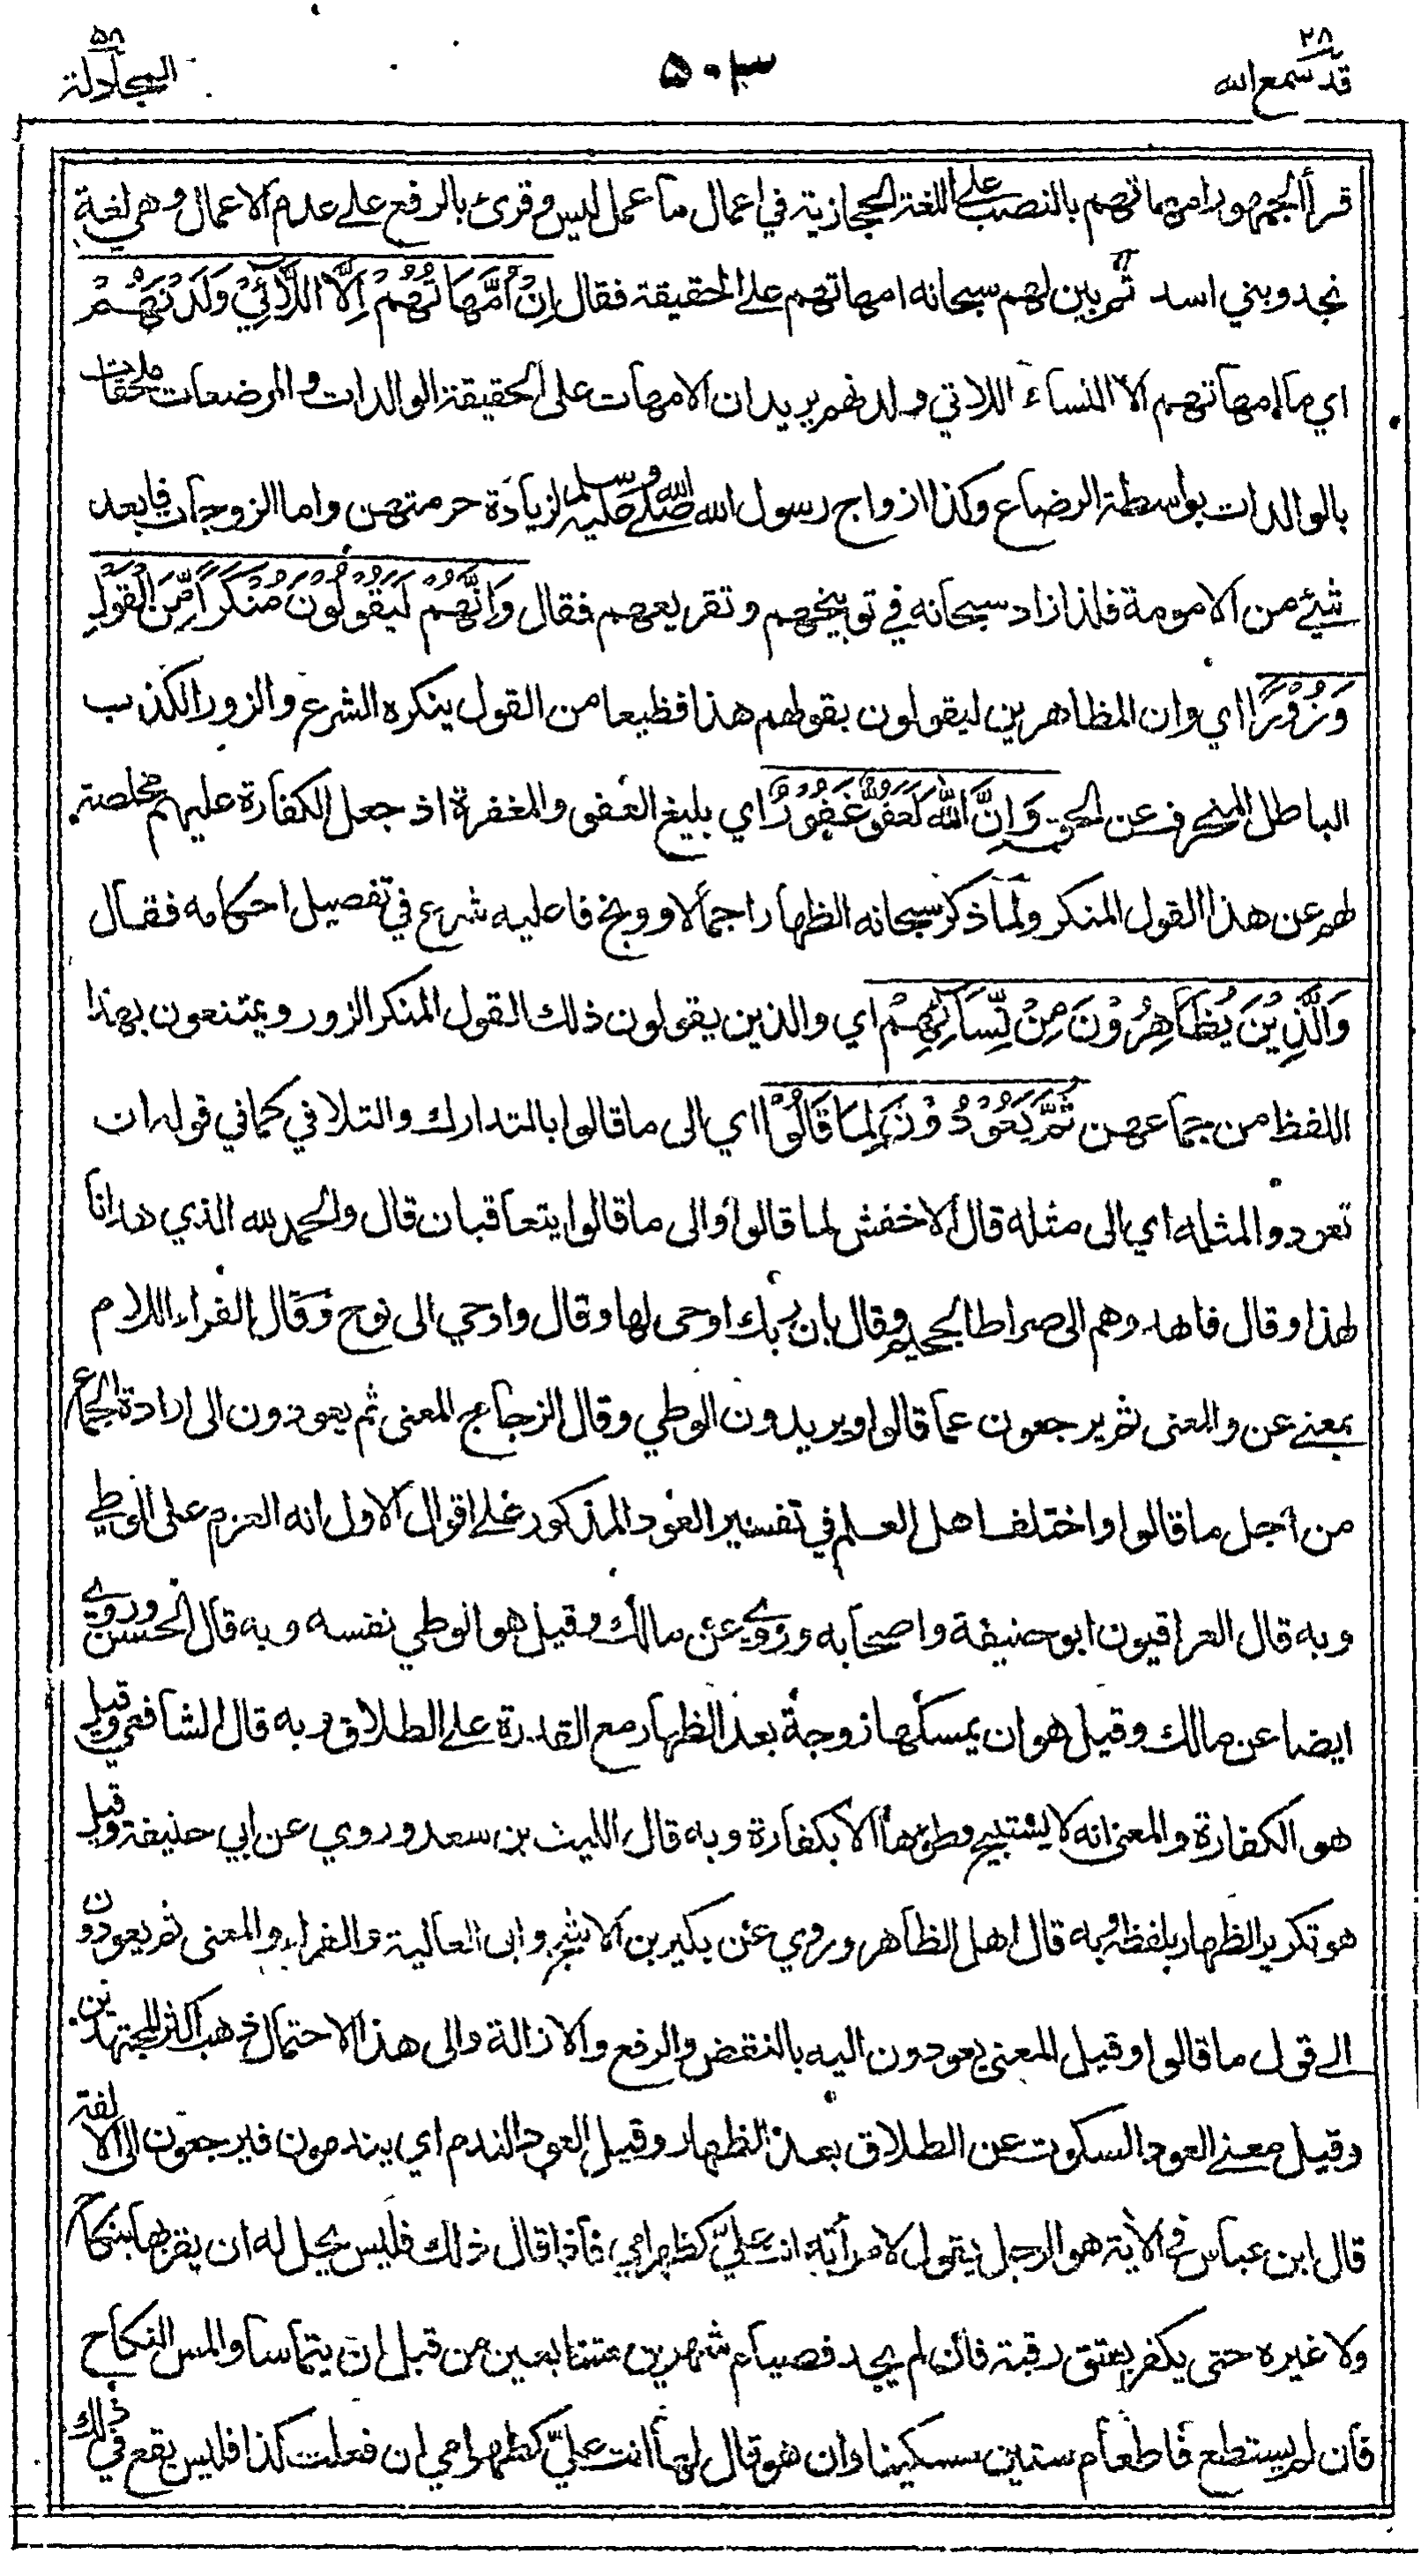 ٢٨
قد سمع الله
٥٠٣
٥٨
المجادلة
قرأ الجمهور امهاتهم بالنصب على اللغة الحجازية في اعمال ما عمل ليس وقرئ بالرفع على عدم الاعمال وهي لغة
نجد وبني اسد ثم بين لهم سبحانه امهاتهم على الحقيقة فقال اِنْ اُمَّهَاتُهُمْ اِلَّا اللَّائِيْ وَلَدْنَهُمْ
اي ما امهاتهم الا النساء اللاتي ولدنهم يريد ان الامهات على الحقيقة الوالدات والمرضعات ملحقات
بالوالدات بواسطة الرضاع وكذا ازواج رسول الله صلى الله عليه وسلم لزيادة حرمتهن واما الزوجات فابعد
شيئ من الامومة فلذا زاد سبحانه في توبيخهم وتقريعهم فقال وَاِنَّهُمْ لَيَقُوْلُوْنَ مُنْكَرًا مِّنَ الْقَوْلِ
وَزُوْرًا اي وان المظاهرين ليقولون بقولهم هذا فظيعا من القول ينكره الشرع والزور الكذب
الباطل المنحرف عن الحق وَاِنَّ اللّٰهَ لَعَفُوٌّ غَفُوْرٌ اي بليغ العفو والمغفرة اذ جعل الكفارة عليهم مخلصة
لهم عن هذا القول المنكر ولما ذكر سبحانه الظهار اجمالا ووبخ فاعليه شرع في تفصيل احكامه فقال
وَالَّذِيْنَ يُظَاهِرُوْنَ مِنْ نِّسَآئِهِمْ اي والذين يقولون ذلك القول المنكر الزور ويمتنعون بهذا
اللفظ من جماعهن ثُمَّ يَعُوْدُوْنَ لِمَا قَالُوْا اي الى ما قالوا بالتدارك والتلافي كما في قوله ان
تعودوا لمثله اي الى مثله قال الاخفش لما قالوا والى ما قالوا يتعاقبان قال والحمد لله الذي هدانا
لهذا وقال فاهدوهم الى صراط الجحيم وقال بان ربك اوحى لها وقال واوحي الى نوح وقال الفراء اللام
بمعنى عن والمعنى ثم يرجعون عما قالوا ويريدون الوطي وقال الزجاج المعنى ثم يعودون الى ارادة الجماع
من اجل ما قالوا واختلف اهل العلم في تفسير العود المذكور على اقوال الاول انه العزم على الوطي
وبه قال العراقيون ابو حنيفة واصحابه وروي عن مالك وقيل هو الوطي نفسه وبه قال الحسن وروي
ايضا عن مالك وقيل هو ان يمسكها زوجة بعد الظهار مع القدرة على الطلاق وبه قال الشافعي وقيل
هو الكفارة والمعنى انه لا يستبيح وطئها الا بكفارة وبه قال الليث بن سعد وروي عن ابي حنيفة وقيل
هو تكرير الظهار بلفظه وبه قال اهل الظاهر وروي عن بكير بن الاشج وابي العالية والفراء والمعنى ثم يعودون
الى قول ما قالوا وقيل المعنى يعودون اليه بالنقض والرفع والازالة والى هذا الاحتمال ذهب اكثر المجتهدين
وقيل معنى العود السكوت عن الطلاق بعد الظهار وقيل العود الندم اي يندمون فيرجعون الى الالفة
قال ابن عباس في الاية هو الرجل يقول لامرأته انت عليّ كظهر امي فاذا قال ذلك فليس يحل له ان يقربها بنكاح
ولا غيره حتى يكفر بعتق رقبة فان لم يجد فصيام شهرين متتابعين من قبل ان يتماسا والمس النكاح
فان لم يستطع فاطعام ستين مسكينا وان هو قال لها انت عليّ كظهر امي ان فعلت كذا فليس يقع في ذلك